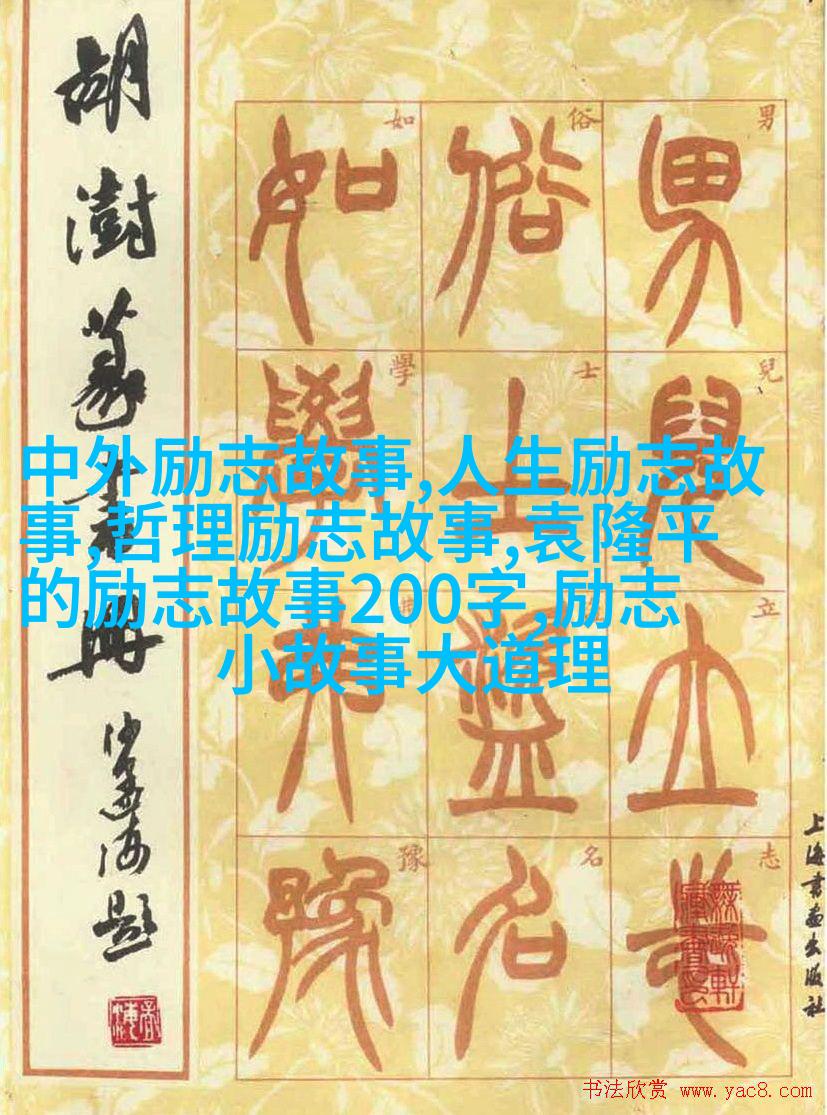 胡澍篆书册
沙孟海题
男兒立志
俗士盜名
如學夷豫
男
兒
立
志
俗
士
名
如
學
豫
中外励志故事,人生励志故
事,哲理励志故事,袁隆平
的励志故事200字,励志
小故事大道理
上海書画出版社
书法欣赏 www.yac8.com